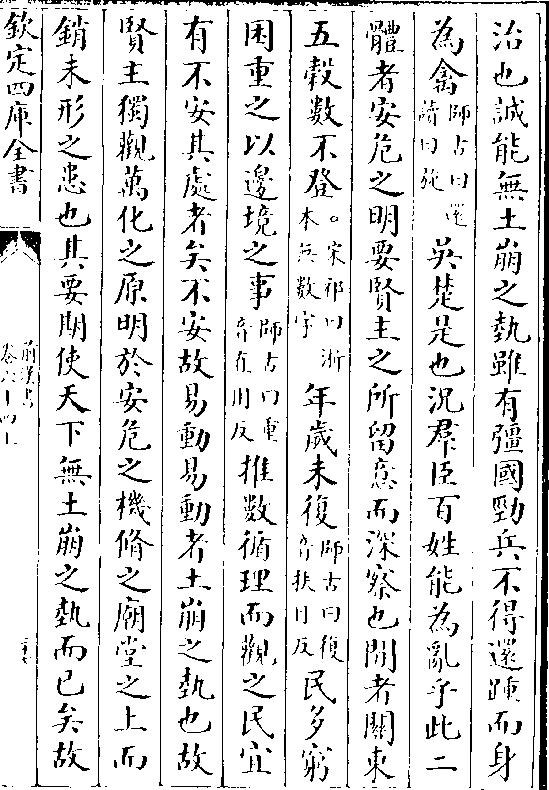 治也誠能無土崩之埶雖有彊國勁兵不得還踵而身
為禽師古曰還讀曰旋吳楚是也況羣臣百姓能為亂乎此二
體者安危之明要賢主之所留意而深察也間者關東
五穀數不登。宋祁曰浙本無數字年歲未復師古曰復音扶目反民多窮
困重之以邊境之事師古曰重音直用反推數循理而觀之民宜
有不安其處者矣不安故易動易動者土崩之埶也故
賢主獨觀萬化之原明於安危之機脩之廟堂之上而
銷未形之患也其要期使天下無土崩之埶而已矣故
欽定四庫全書
前漢書
卷六十四上